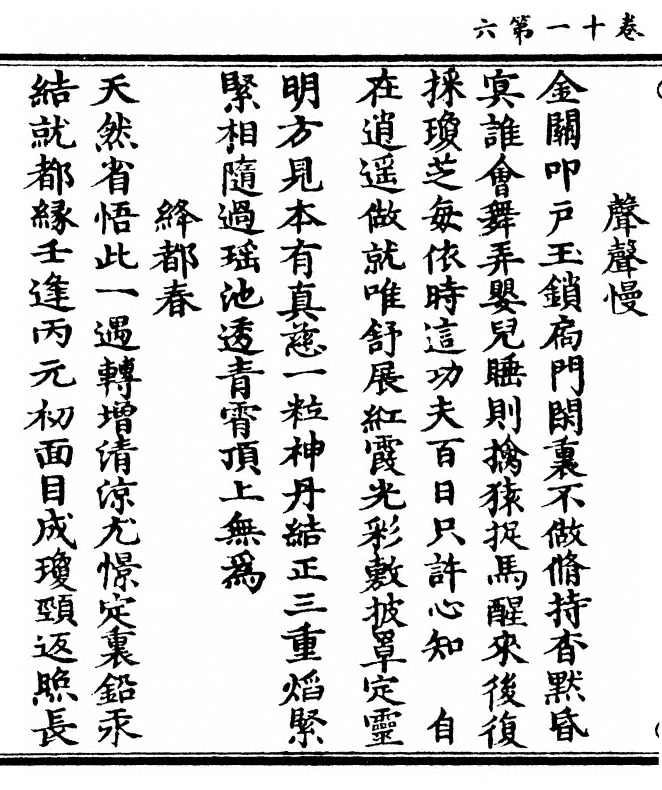 卷十一第六
聲聲慢
金關叩戶玉鎖扃門閑裏不做脩持杳默昏
㝠誰會舞弄嬰兒睡則擒猿捉馬醒來後復
採瓊芝每依時這功夫百日只許心知　自
在逍遥做就唯舒展紅霞光彩敷披罩定靈
明方見本有真慈一粒神丹結正三重焰緊
緊相隨過瑶池透青霄頂上無爲
絳都春
天然省悟此一遇轉增清涼尤憬定裏鉛汞
結就都緣壬逢丙元初面目成瓊頸返照長